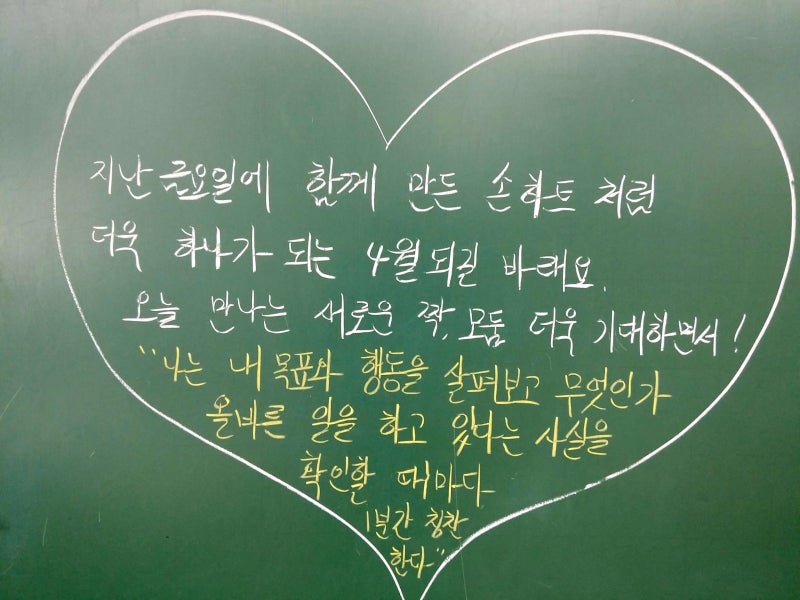 지난 금요일에 함께 만든 손하트 처럼
더욱 하나가 되는 4월 되길 바래요.
오늘 만나는 새로운 짝, 모둠 더욱 기대하면서!
"나는 내 목표와 행동을 살펴보고 무엇인가
올바른 일을 하고 있다는 사실을
확인할 때마다
1분간 칭찬
한다"